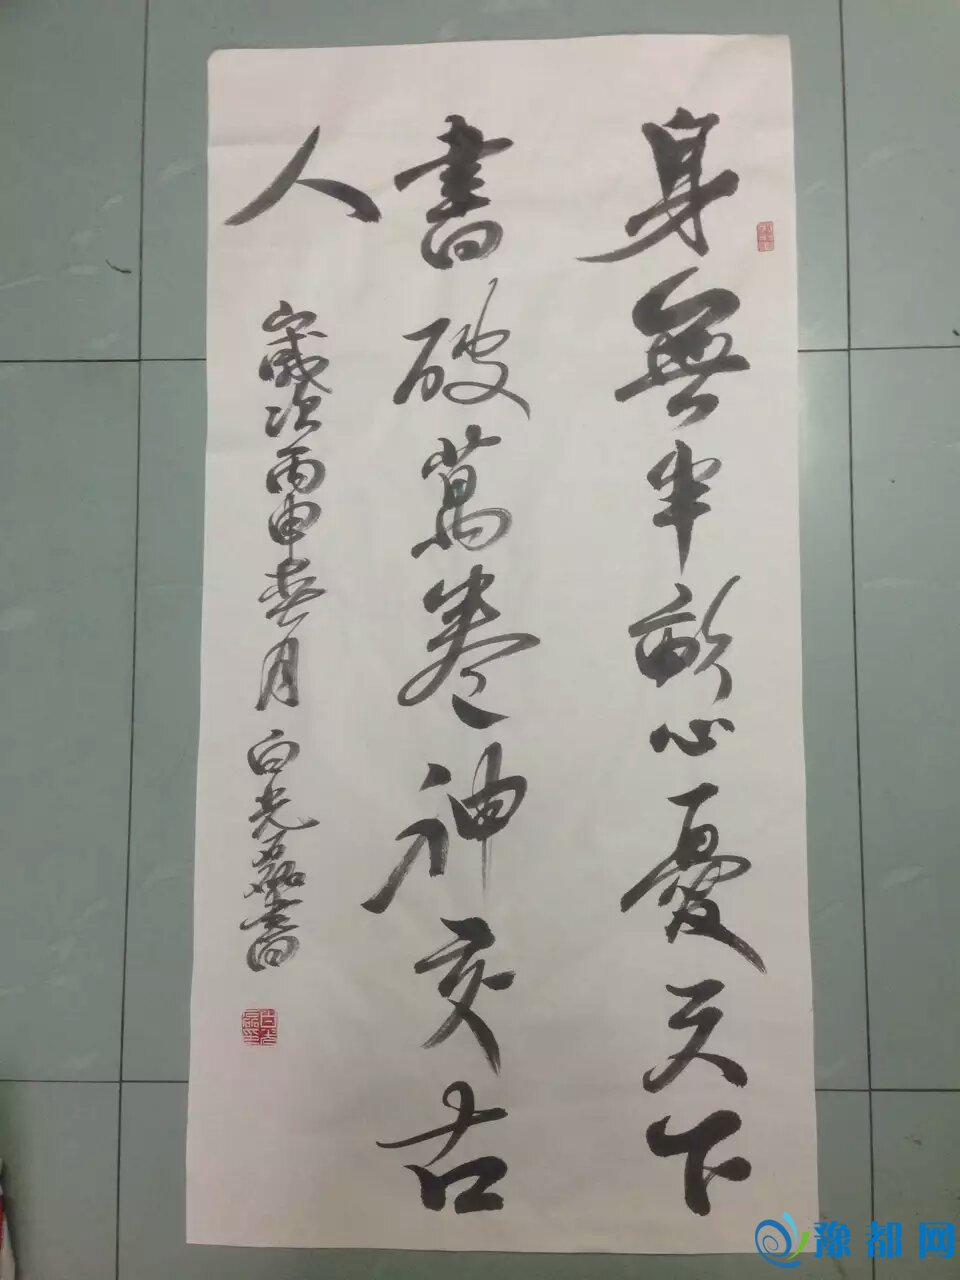 身無半畝心憂天下
書破萬卷神交古
人
歲次丙申春月 白光磊書
豫都网